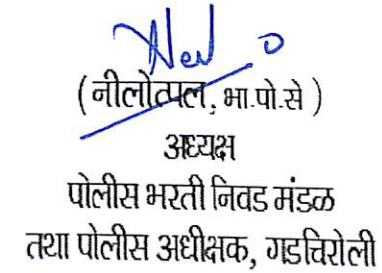 (नीलोत्पल, भा.पो.से)
अध्यक्ष
पोलीस भरती निवड मंडळ
तथा पोलीस अधीक्षक, गडचिरोली